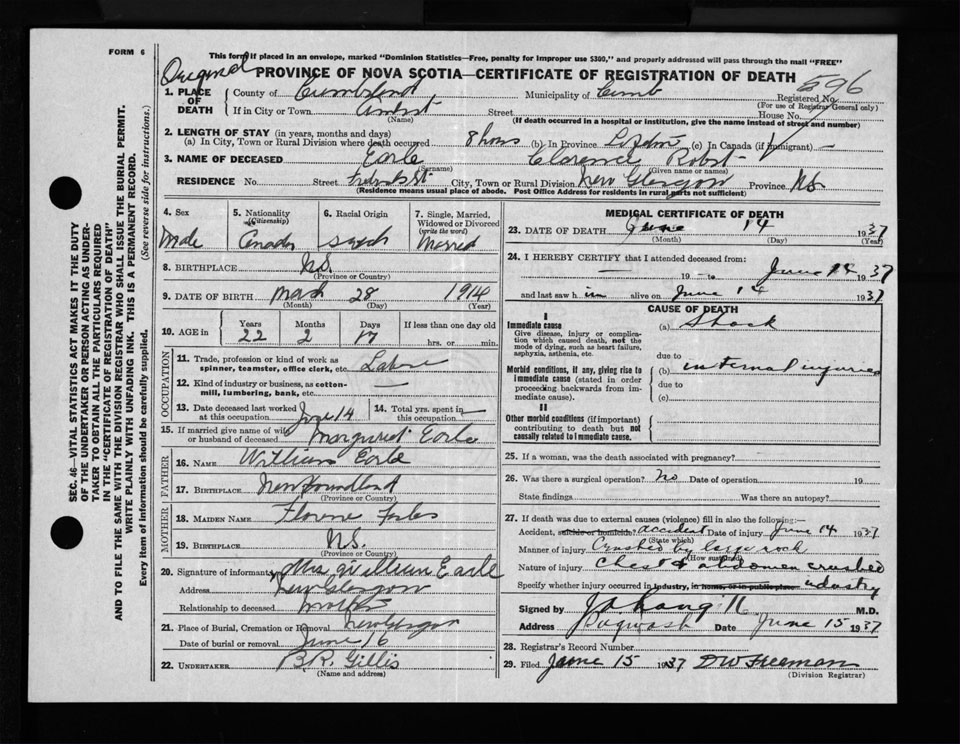 FORM 6
This form if placed in an envelope, marked "Dominion Statistics—Free, penalty for improper use $300," and properly addressed will pass through the mail "FREE"
Original
PROVINCE OF NOVA SCOTIA—CERTIFICATE OF REGISTRATION OF DEATH
596
1. PLACE OF DEATH
County of Cumberland Municipality of Cumb Registered No.
(For use of Registrar General only)
If in City or Town Street House No.
(Name) (If death occurred in a hospital or institution, give the name instead of street and number)
2. LENGTH OF STAY (in years, months and days)
(a) In City, Town or Rural Division where death occurred 8 hours (b) In Province (c) In Canada (if immigrant) —
3. NAME OF DECEASED Earle Clarence Robt
(Surname) (Given name or names)
RESIDENCE No. Street City, Town or Rural Division New Glasgow Province N.S.
(Residence means usual place of abode. Post Office Address for residents in rural parts not sufficient)
4. Sex Male
5. Nationality (Citizenship) Canada
6. Racial Origin
7. Single, Married, Widowed or Divorced (write the word) Married
8. BIRTHPLACE N.S.
(Province or Country)
9. DATE OF BIRTH March 28 1914
(Month) (Day) (Year)
10. AGE in Years Months Days If less than one day old
22 2 17 hrs. or min.
OCCUPATION
11. Trade, profession or kind of work as spinner, teamster, office clerk, etc. Labor
12. Kind of industry or business, as cotton-mill, lumbering, bank, etc. —
13. Date deceased last worked at this occupation June 14
14. Total yrs. spent in this occupation —
15. If married give name of wife or husband of deceased Margaret Earle
FATHER
16. NAME William Earle
17. BIRTHPLACE Newfoundland
(Province or Country)
MOTHER
18. MAIDEN NAME Florence Forbes
19. BIRTHPLACE N.S.
(Province or Country)
20. Signature of informant Mrs William Earle
Address New Glasgow
Relationship to deceased mother
21. Place of Burial, Cremation or Removal New Glasgow
Date of burial or removal June 16
22. UNDERTAKER B.R. Gillis
(Name and address)
MEDICAL CERTIFICATE OF DEATH
23. DATE OF DEATH June 14 1937
(Month) (Day) (Year)
24. I HEREBY CERTIFY that I attended deceased from:
— 19 — to June 14 1937
and last saw him alive on June 14 1937
CAUSE OF DEATH
I
Immediate cause
Give disease, injury or complication which caused death, not the mode of dying, such as heart failure, asphyxia, asthenia, etc.
(a) Shock
due to
Morbid conditions, if any, giving rise to immediate cause (stated in order proceeding backwards from immediate cause).
(b) internal injuries
due to
(c)
II
Other morbid conditions (if important) contributing to death but not causally related to immediate cause.
25. If a woman, was the death associated with pregnancy?
26. Was there a surgical operation? No Date of operation 19
State findings Was there an autopsy?
27. If death was due to external causes (violence) fill in also the following:—
Accident, suicide or homicide? Accident Date of injury June 14 1937
(State which)
Manner of injury Crushed by large rock
Nature of injury Chest & abdomen crushed
Specify whether injury occurred in industry, in home, or in public place industry
Signed by M.D.
Address Pugwash Date June 15 1937
28. Registrar's Record Number
29. Filed June 15 1937 D W Freeman
(Division Registrar)
SEC. 46—VITAL STATISTICS ACT MAKES IT THE DUTY
OF THE UNDERTAKER OR PERSON ACTING AS UNDER-
TAKER TO OBTAIN ALL THE PARTICULARS REQUIRED
IN THE "CERTIFICATE OF REGISTRATION OF DEATH"
AND TO FILE THE SAME WITH THE DIVISION REGISTRAR WHO SHALL ISSUE THE BURIAL PERMIT.
WRITE PLAINLY WITH UNFADING INK. THIS IS A PERMANENT RECORD.
Every item of information should be carefully supplied. (See reverse side for instructions.)